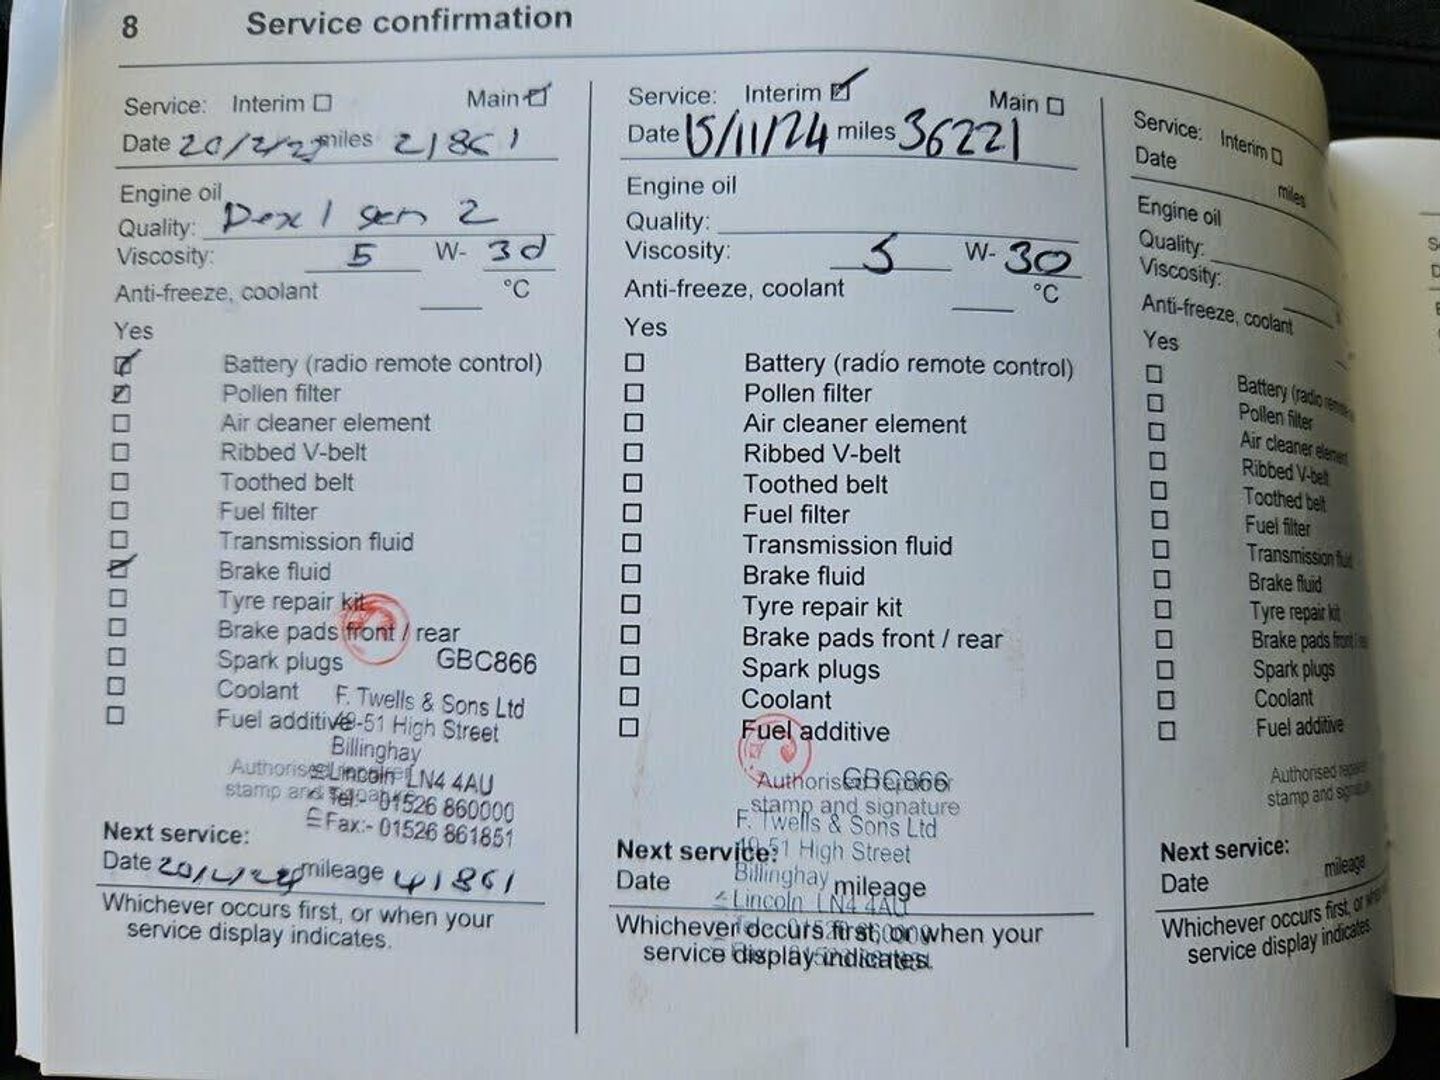 8 Service confirmation
Service: Interim ☐ Main ☑
Date 20/2/23 miles 21861
Engine oil
Quality: Dex 1 gen 2
Viscosity: 5 W- 30
Anti-freeze, coolant °C
Yes
☑ Battery (radio remote control)
☑ Pollen filter
☐ Air cleaner element
☐ Ribbed V-belt
☐ Toothed belt
☐ Fuel filter
☐ Transmission fluid
☑ Brake fluid
☐ Tyre repair kit
☐ Brake pads front / rear
☐ Spark plugs
GBC866
☐ Coolant
☐ Fuel additive
F. Twells & Sons Ltd
49-51 High Street
Billinghay
Lincoln LN4 4AU
Tel:- 01526 860000
Fax:- 01526 861851
Authorised repairer
stamp and signature
Next service:
Date mileage 41861
Whichever occurs first, or when your
service display indicates.
Service: Interim ☑ Main ☐
Date 15/11/24 miles 36221
Engine oil
Quality:
Viscosity: 5 W- 30
Anti-freeze, coolant °C
Yes
☐ Battery (radio remote control)
☐ Pollen filter
☐ Air cleaner element
☐ Ribbed V-belt
☐ Toothed belt
☐ Fuel filter
☐ Transmission fluid
☐ Brake fluid
☐ Tyre repair kit
☐ Brake pads front / rear
☐ Spark plugs
☐ Coolant
☐ Fuel additive
GBC866
Authorised repairer
stamp and signature
F. Twells & Sons Ltd
49-51 High Street
Billinghay
Lincoln LN4 4AU
Next service:
Date mileage
Whichever occurs first, or when your
service display indicates.
Service: Interim ☐
Date miles
Engine oil
Quality:
Viscosity:
Anti-freeze, coolant
Yes
☐ Battery (radio remote
☐ Pollen filter
☐ Air cleaner element
☐ Ribbed V-belt
☐ Toothed belt
☐ Fuel filter
☐ Transmission fluid
☐ Brake fluid
☐ Tyre repair kit
☐ Brake pads front /
☐ Spark plugs
☐ Coolant
☐ Fuel additive
Authorised repairer
stamp and signature
Next service:
Date mileage
Whichever occurs first, or
service display indicates.